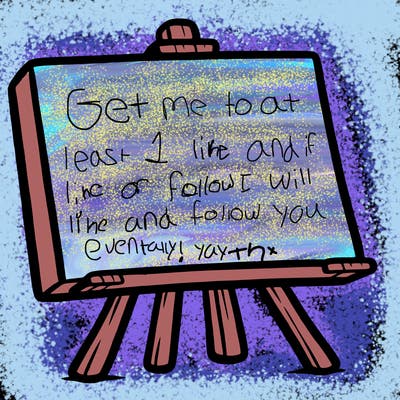 Get me to at
least 1 like and if
like or follow I will
like and follow you
eventally! yay thx